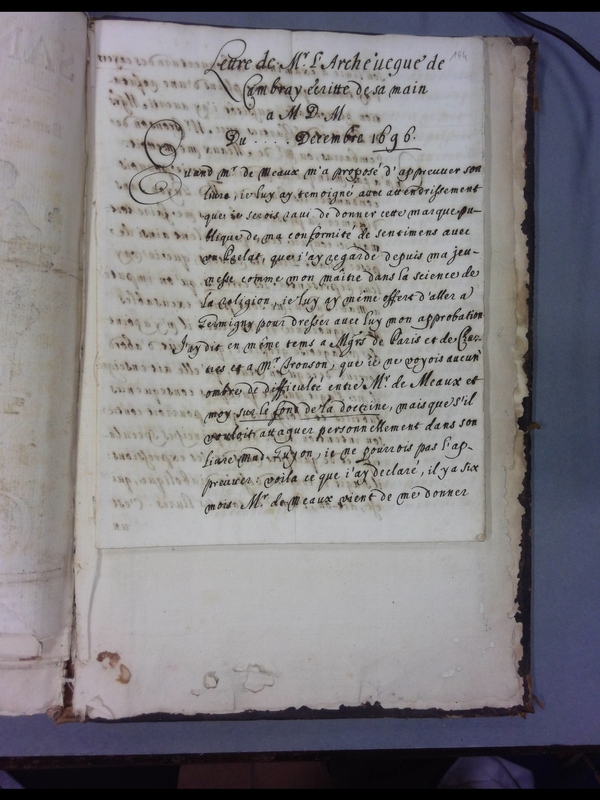 Lettre de Mr. L'Archeuesque de
Cambray écritte de sa main
a M. D. M.
Du . . . . Decembre 1696.
Quand Mr. de Meaux m'a proposé d'approuuer son
liure, ie luy ay temoigné auec attendrissement
que ie serois raui de donner cette marque pu-
blique de ma conformité de sentimens auec
un Prelat, que i'ay regardé depuis ma jeu-
nesse comme mon maître dans la science de
la religion, ie luy ay même offert d'aller a
Germigny pour dresser auec luy mon approbation
J'ay dit en même tems a Mgrs de Paris et de Char-
tres et a Mr Tronson, que ie ne voyois aucun
ombre de difficulté entre Mr. de Meaux et
moy sur le fond de la doctrine, mais que s'il
vouloit attaquer personnellement dans son
liure Mad. Guyon, ie ne pourrois pas l'ap-
preuuer: voila ce que i'ay declaré, il y a six
mois. Mr. de Meaux vient de me donner